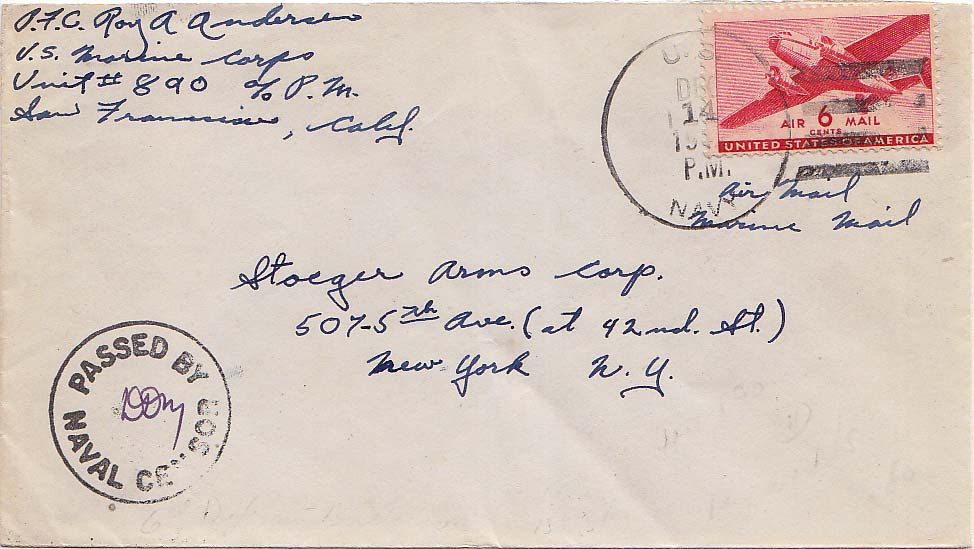 P.F.C. Roy A Andersen
U.S. Marine Corps
Unit # 890 c/o P.M.
San Francisco, Calif.
U.S.
14
P.M.
NAVY
AIR 6 MAIL
CENTS
UNITED STATES OF AMERICA
Air Mail
Marine Mail
Stoeger Arms Corp.
507-5th Ave. (at 42nd. St.)
New York N.Y.
PASSED BY
NAVAL CENSOR